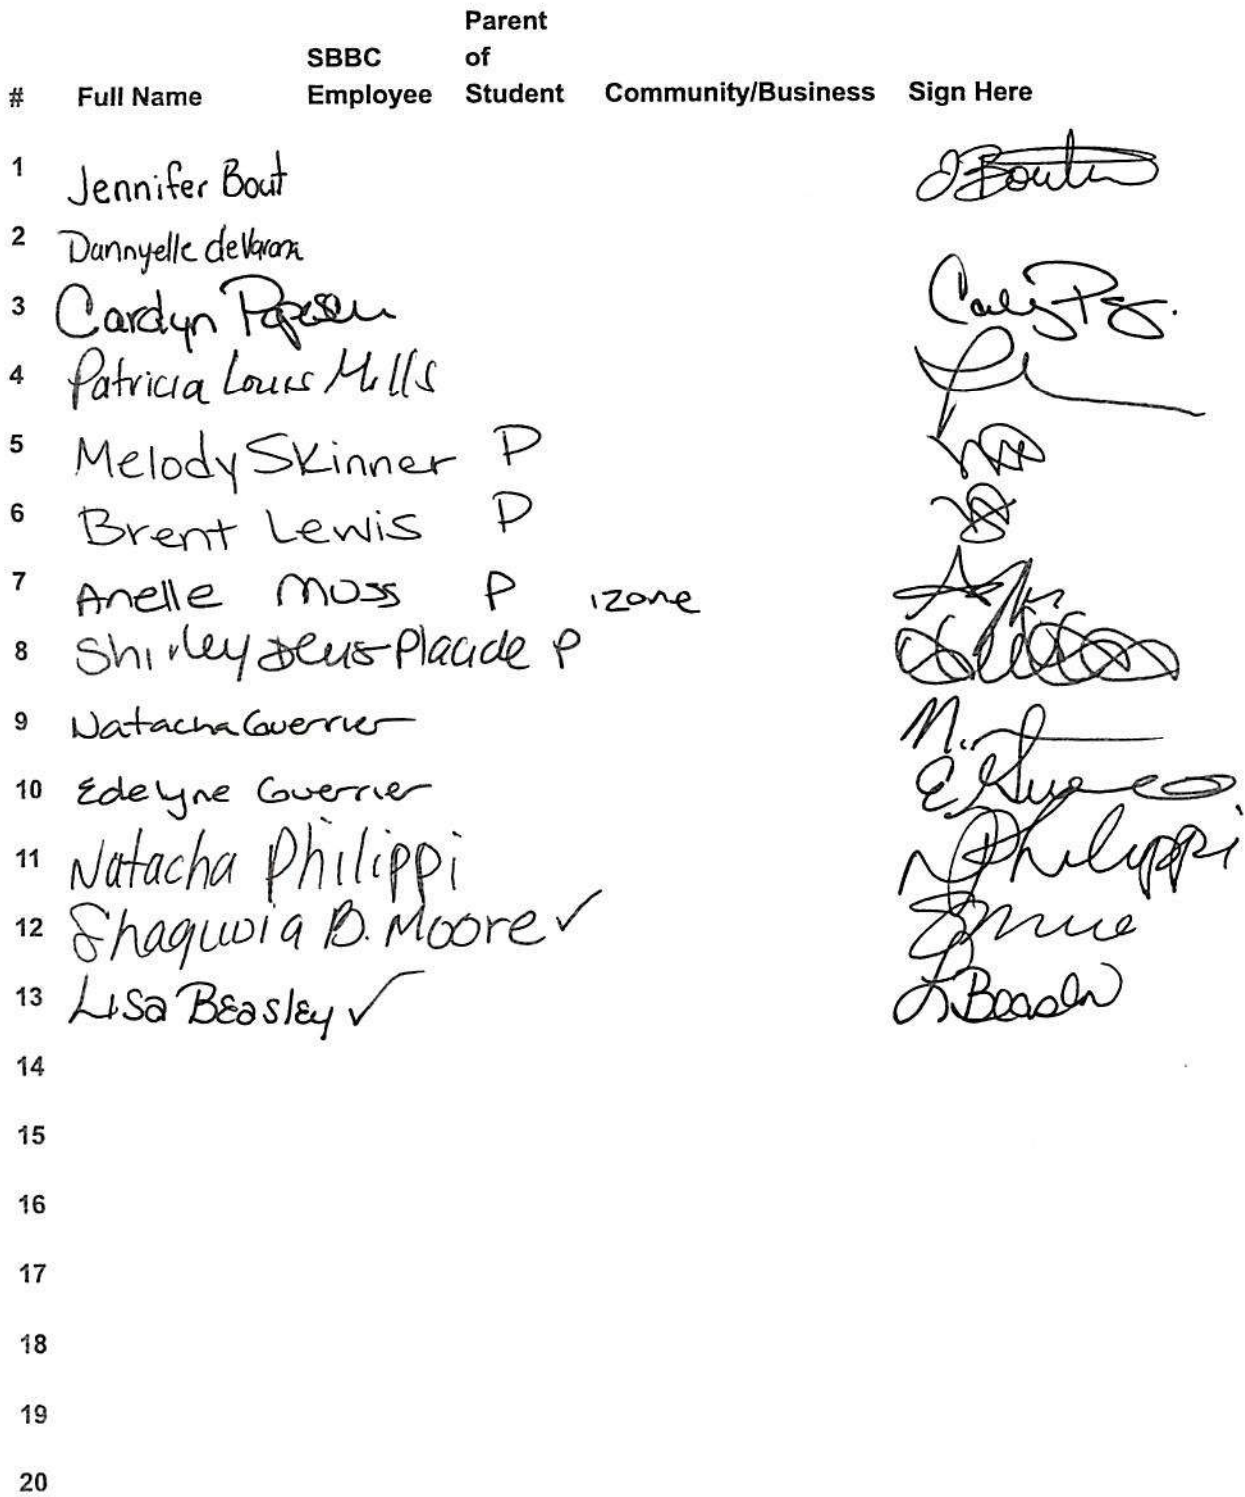 Parent
SBBC of
# Full Name Employee Student Community/Business Sign Here
1 Jennifer Bout J Boutin
2 Dannyelle deVarona
3 Carolyn
4 Patricia Louis Mills
5 Melody Skinner P
6 Brent Lewis P
7 Anelle Moss P izone
8 Shirley Deus-Placide P
9 Natacha Guerrier
10 Edelyne Guerrier
11 Natacha Philippi N Philippi
12 Shaquvia B. Moore ✓
13 Lisa Beasley ✓ L Beasley
14
15
16
17
18
19
20